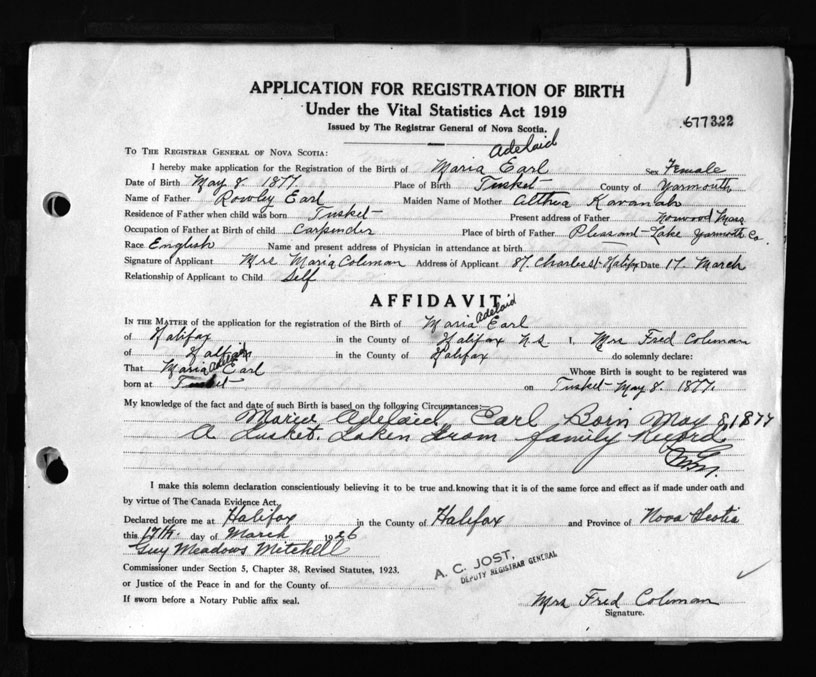 APPLICATION FOR REGISTRATION OF BIRTH
Under the Vital Statistics Act 1919
Issued by The Registrar General of Nova Scotia.
677322
To The Registrar General of Nova Scotia:
Adelaid
I hereby make application for the Registration of the Birth of Maria Earl Sex Female
Date of Birth May 8. 1877 Place of Birth Tusket County of Yarmouth
Name of Father Rowley Earl Maiden Name of Mother Althea Kavanah
Residence of Father when child was born Tusket Present address of Father Norwood Mass
Occupation of Father at Birth of child Carpinder Place of birth of Father Pleasant Lake Yarmoth Co.
Race English Name and present address of Physician in attendance at birth
Signature of Applicant Mrs Maria Coleman Address of Applicant 87. Charles St Halifax Date 17. March
Relationship of Applicant to Child Self
AFFIDAVIT
Adelaid
In the Matter of the application for the registration of the Birth of Maria Earl
of Halifax in the County of Halifax N S I, Mrs Fred Coleman
of Halifax in the County of Halifax do solemnly declare:
Adelaid
That Maria Earl Whose Birth is sought to be registered was
born at Tusket on Tusket May 8. 1877.
My knowledge of the fact and date of such Birth is based on the following Circumstances:
Maria Adelaid Earl Born May 8, 1877
A Tusket. Taken from family Record
I make this solemn declaration conscientiously believing it to be true and knowing that it is of the same force and effect as if made under oath and
by virtue of The Canada Evidence Act.
Declared before me at Halifax in the County of Halifax and Province of Nova Scotia
this 17th. day of March 1926
Guy Meadows Mitchell
Commissioner under Section 5, Chapter 38, Revised Statutes, 1923.
A. C. JOST,
DEPUTY REGISTRAR GENERAL
or Justice of the Peace in and for the County of
If sworn before a Notary Public affix seal.
Mrs Fred Coleman
Signature.